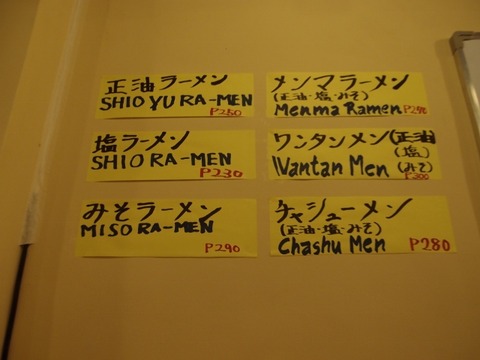 正油ラーメン
SHIO YU RA-MEN
P250
塩ラーメン
SHIO RA-MEN
P230
みそラーメン
MISO RA-MEN
P290
メンマラーメン
(正油・塩・みそ)
Menma Ramen
ワンタンメン(正油)
(塩)
Wantan Men (みそ)
P300
チャシューメン
(正油・塩・みそ)
Chashu Men P280